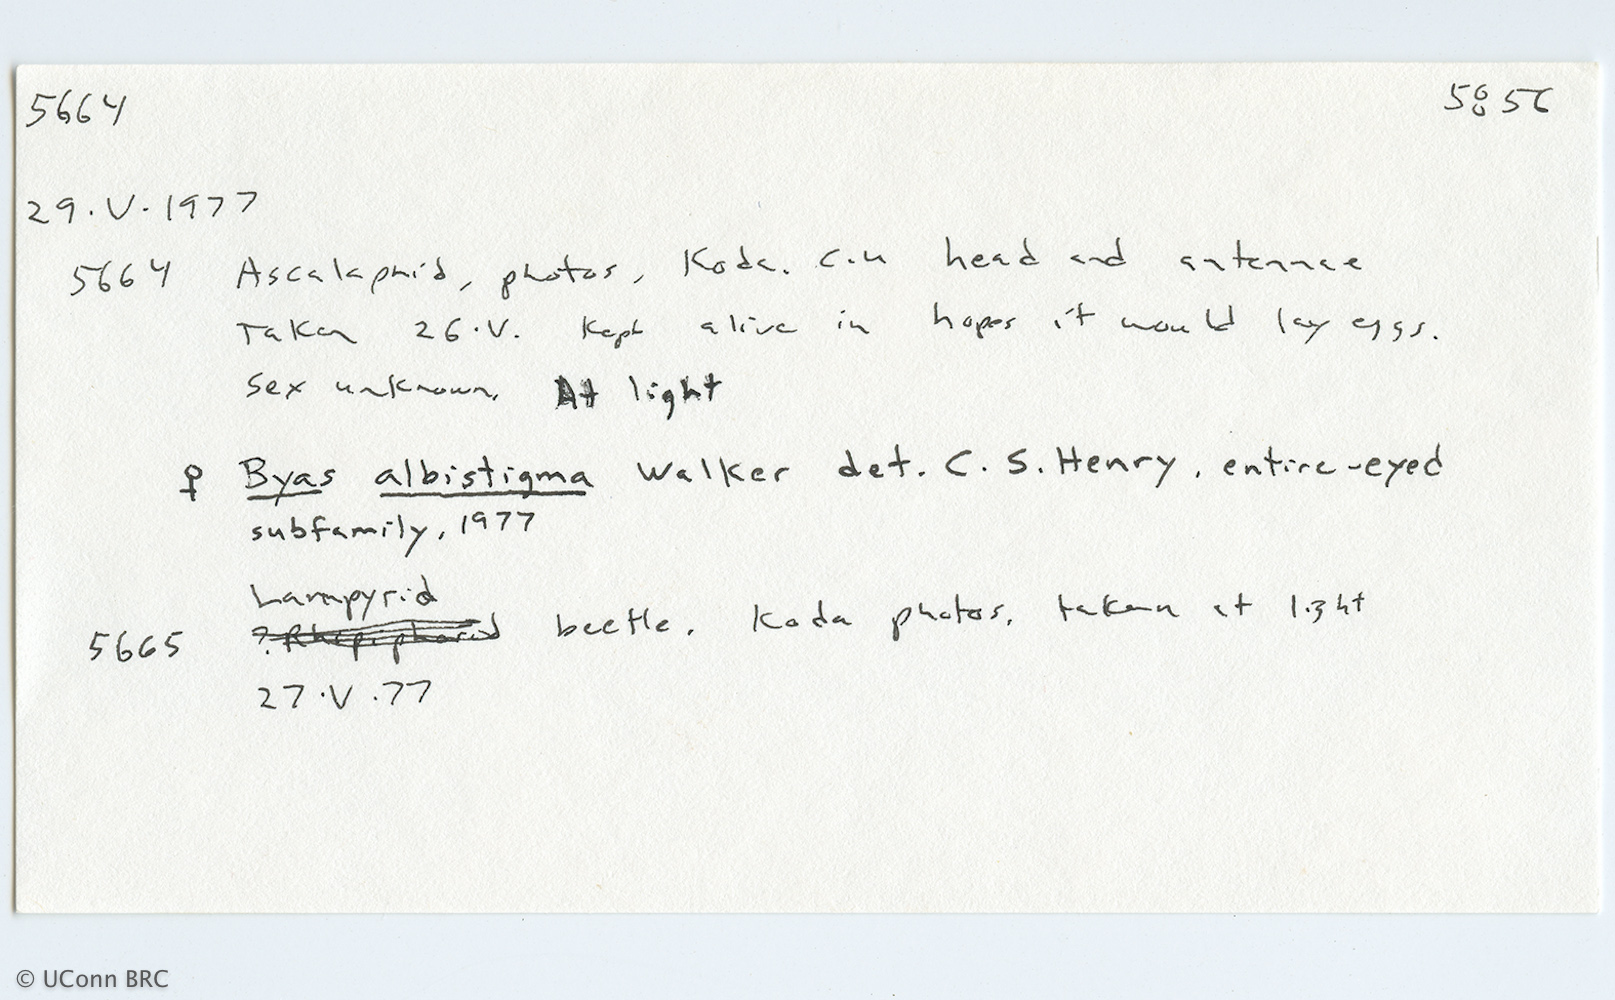 5664 5856
29.V.1977
5664 Ascalaphid, photos, Koda. c.u head and antennae
Taken 26.V. Kept alive in hopes it would lay eggs.
Sex unknown. At light
♀ Byas albistigma Walker det. C. S. Henry, entire-eyed
subfamily, 1977
Lampyrid
5665 ?Rhipiphorid beetle. Koda photos. taken at light
27.V.77
© UConn BRC